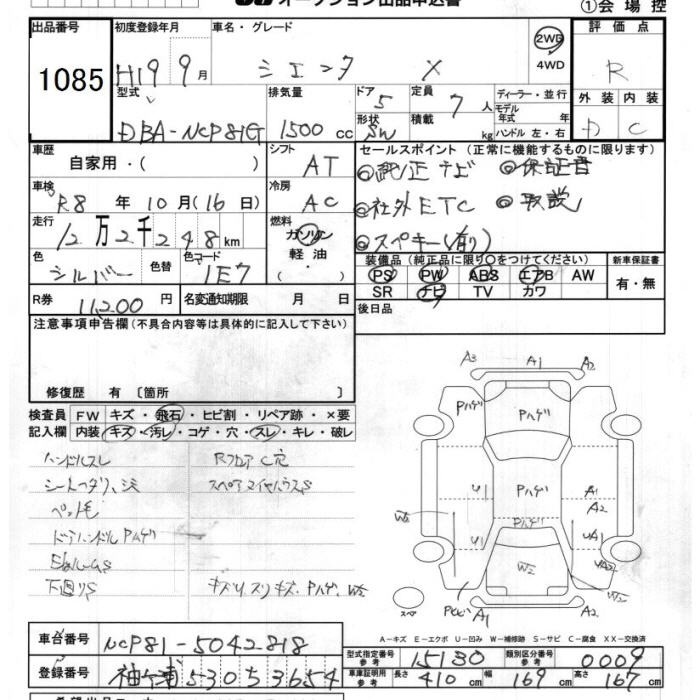 オークション出品申込書
①会場控
出品番号
1085
初度登録年月
H19 9月
車名・グレード
シエンタ X
2WD
4WD
評価点
R
外装 内装
D C
型式
DBA-NCP81G
排気量
1500 cc
ドア
5
形状
SW
定員
7 人
積載
kg
ディーラー・並行
モデル年式 年
ハンドル 左・右
車歴
自家用・( )
シフト
AT
セールスポイント (正常に機能するものに限ります)
◎純正ナビ ◎保証書
◎社外ETC ◎取説
◎スペキー(有り)
車検
R8 年 10 月 (16 日)
冷房
AC
走行
12万2千248km
燃料
ガソリン
軽油
・( )
色
シルバー
色替
色コード
1E7
装備品 (純正品に限り○をつけてください)
PS PW ABS エアB AW
SR ナビ TV カワ
新車保証書
有・無
R券
11200 円
名変通知期限 月 日
後日品
注意事項申告欄 (不具合内容等は具体的に記入して下さい)
修復歴 有 〔箇所 〕
検査員記入欄
FW キズ・飛石・ヒビ割・リペア跡・×要
内装 キズ・汚レ・コゲ・穴・スレ・キレ・破レ
ハンドルスレ RフロアC穴
シートヘタリ、シミ
ペット毛
ドアハンドルPハゲ
下廻りS キズリ、スリキズ、Pハゲ、W2
A3 A1 A2
Pハゲ Pハゲ
U1 Pハゲ A1
A2
W2 Pハゲ
U1 UA1
W2 UA2
スペア A1 A2
A-キズ E-エクボ U-凹み W-補修跡 S-サビ C-腐食 XX-交換済
車台番号
NCP81-5042818
型式指定番号 参考
15130
類別区分番号 参考
0009
登録番号
袖ヶ浦530ち3654
車庫証明用 参考
長さ 410 cm 幅 169 cm 高さ 167 cm